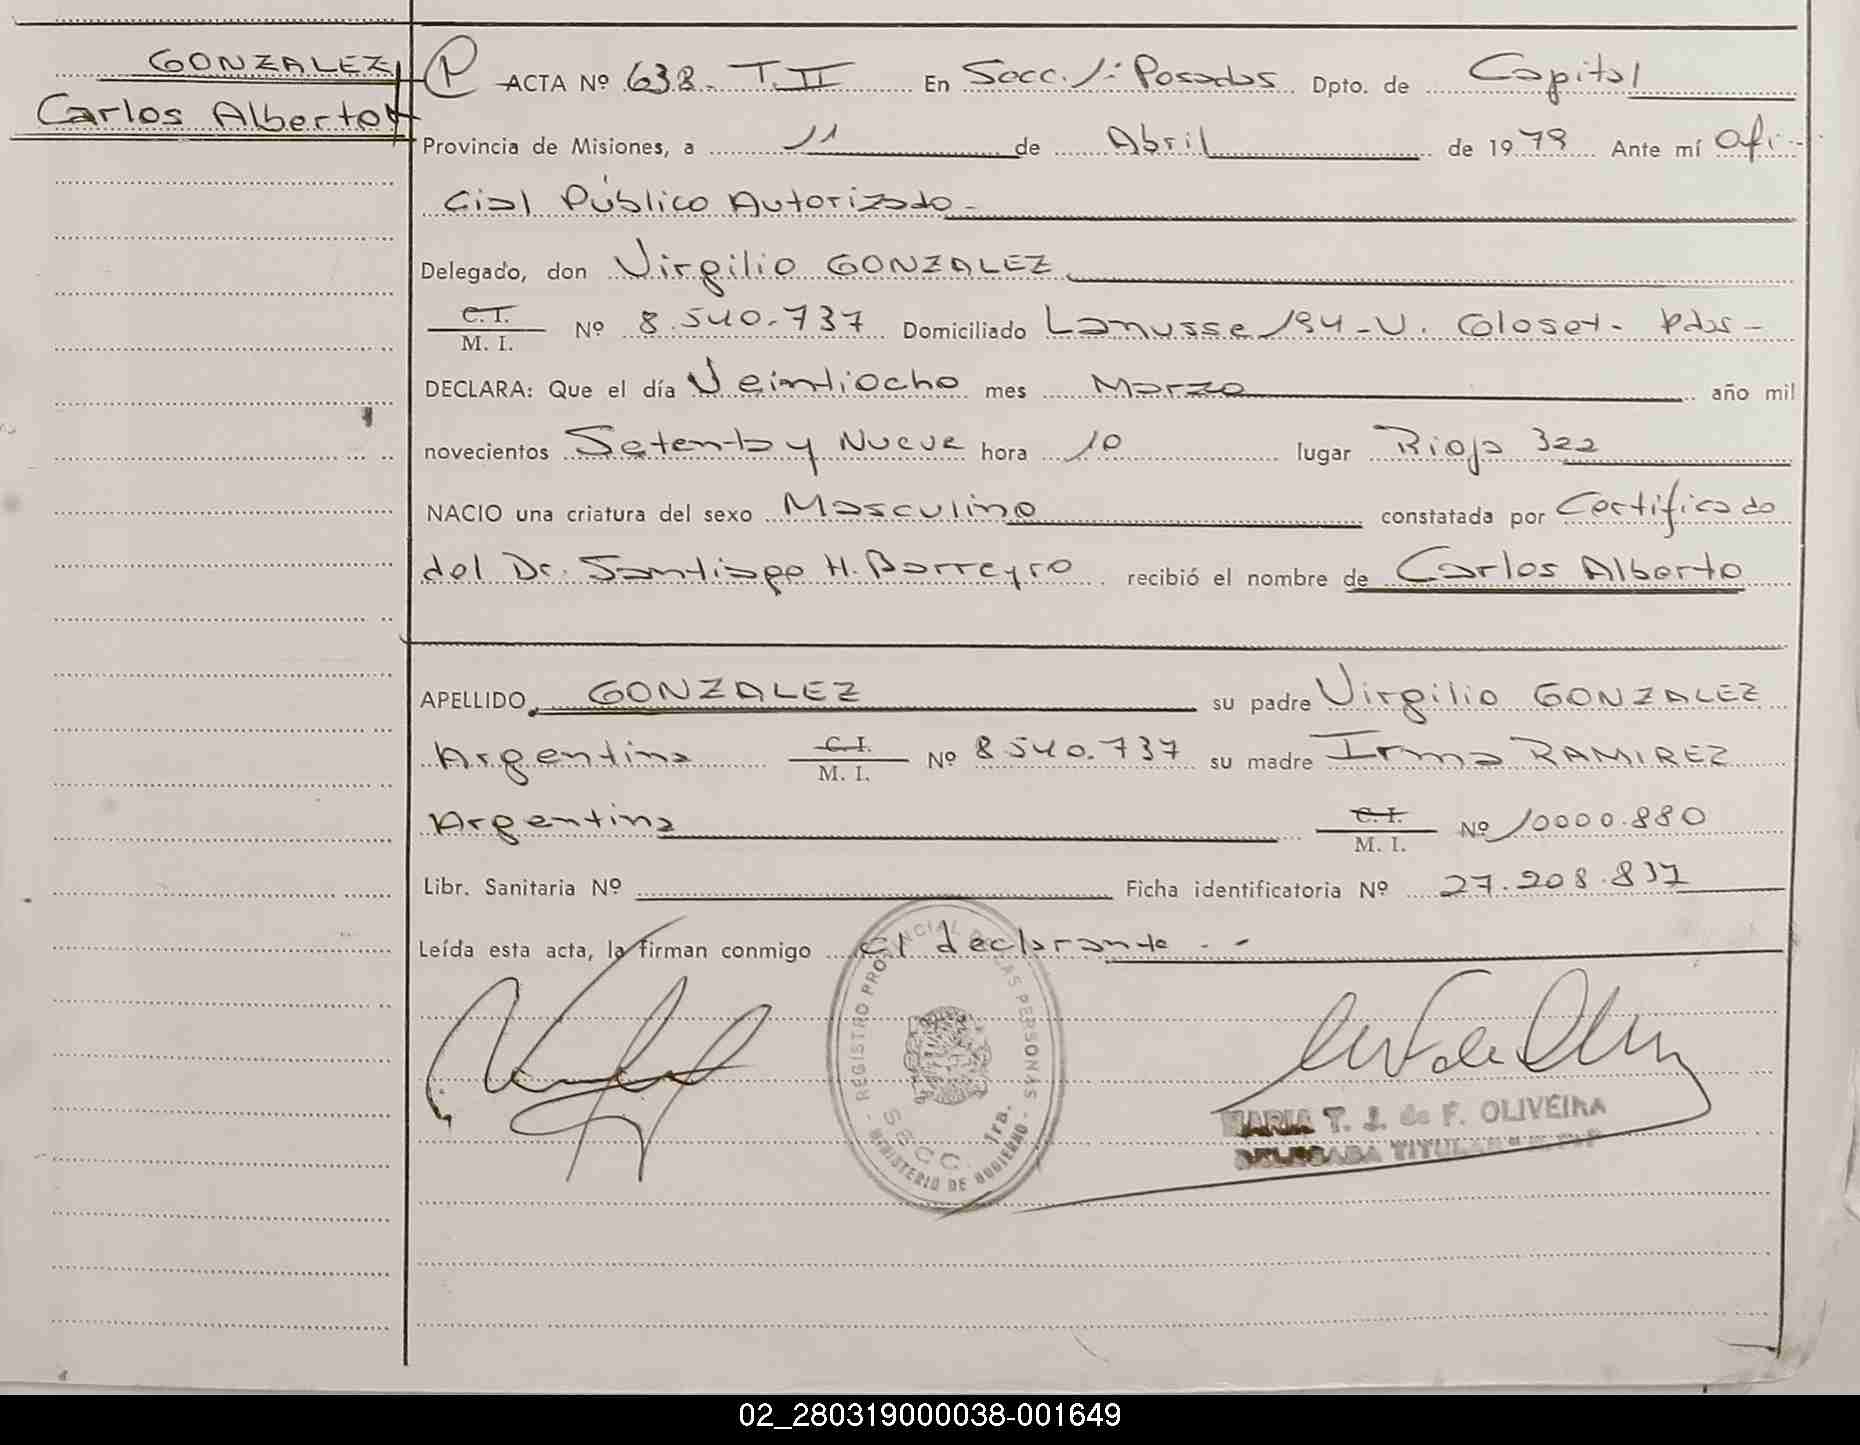 GONZALEZ
Carlos Alberto
P ACTA Nº 638. T.II En Secc. 1ª Posadas Dpto. de Capital
Provincia de Misiones, a 11 de Abril de 1979 Ante mí Ofi-
cial Público Autorizado-
Delegado, don Virgilio GONZALEZ
C.I.
M. I. Nº 8.540.737 Domiciliado Lanusse 194-V. Pdas-
DECLARA: Que el día Veintiocho mes Marzo año mil
novecientos Setenta y Nueve hora 10 lugar Rioja 322
NACIO una criatura del sexo Masculino constatada por Certificado
del Dr. Santiago H. Barreyro recibió el nombre de Carlos Alberto
APELLIDO GONZALEZ su padre Virgilio GONZALEZ
Argentina C.I.
M. I. Nº 8.540.737 su madre Irma RAMIREZ
Argentina C.I.
M. I. Nº 10000.880
Libr. Sanitaria Nº Ficha identificatoria Nº 27.208.837
Leída esta acta, la firman conmigo el declarante.-
REGISTRO PROVINCIAL DE LAS PERSONAS
SECC. 1ra.
MINISTERIO DE GOBIERNO
MARIA T. J. de F. OLIVEIRA
DELEGADA TITULAR
02_280319000038-001649